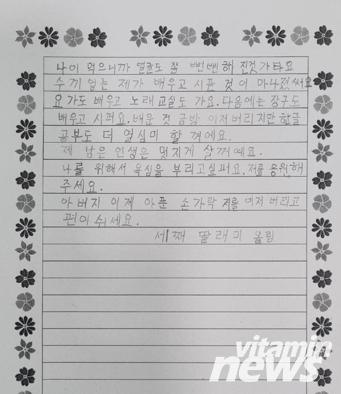 나이 먹으니까 얼굴도 좀 뻔뻔해 진것 가타요
수끼 업는 제가 배우고 시픈 것이 마나젔써요
요가도 배우고 노래교실도 가요. 다음에는 장구도
배우고 시퍼요. 배운 것 금방 이저버리지만 한글
공부도 더 열심미 할 꺼에요.
제 남은 인생은 멋지게 살꺼예요.
나를 위해서 욕심을 부리고 실퍼요. 저를 응원해
주세요.
아버지 이제 아푼 손가락 저를 이저 버리고
편이 쉬세요.
세째 딸래미 올림
vitamin
news